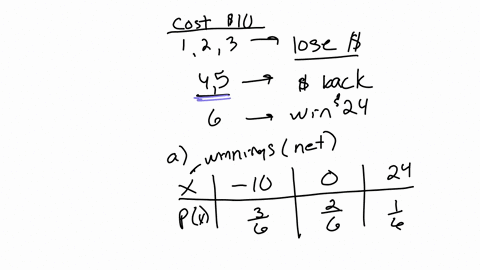 Cost $10
1, 2, 3 → lose $
4,5 → $ back
6 → win $24
a) winnings (net)
X | -10 | 0 | 24
P(x) | 3/6 | 2/6 | 1/6